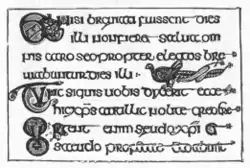 nisi breuiati fuissent dies
illi non fieret salua om
nis caro sed propter electos bre
uiabuntur dies illi
Tunc siquis uobis dixerit ecce
hic xps aut illic nolite credere
enim seudo xpi
seudo prophetae dabunt